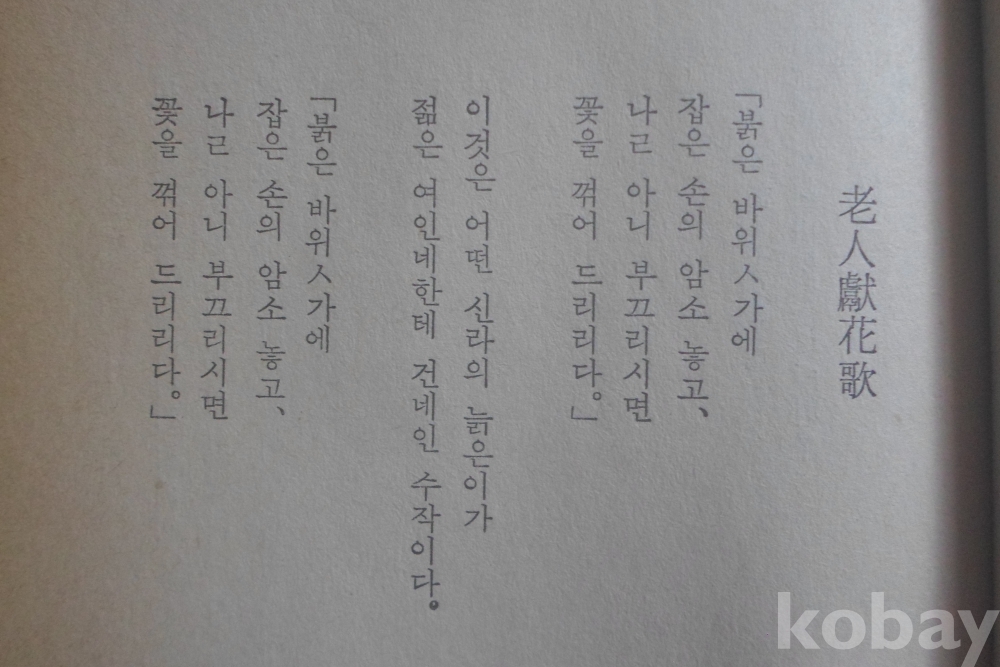 老人獻花歌
「붉은 바위ㅅ가에
잡은 손의 암소 놓고、
나ㄹ 아니 부끄리시면
꽃을 꺾어 드리리다。」
이것은 어떤 신라의 늙은이가
젊은 여인네한테 건네인 수작이다。
「붉은 바위ㅅ가에
잡은 손의 암소 놓고、
나ㄹ 아니 부끄리시면
꽃을 꺾어 드리리다。」
kobay